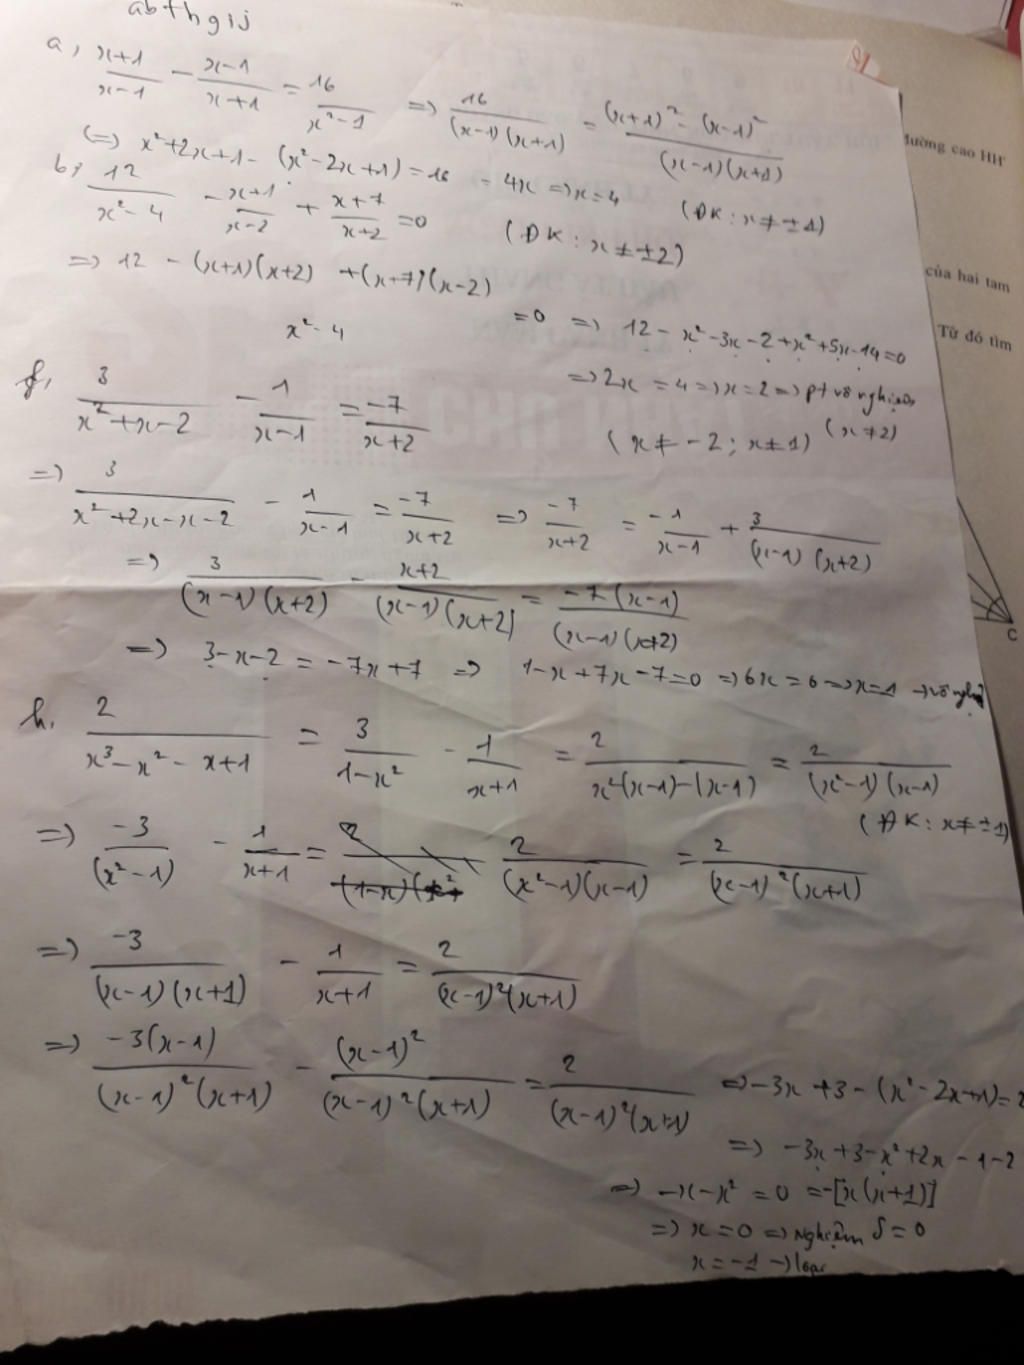 abfhgij
a, x+1/x-1 - x-1/x+1 = 16/x²-1 => 16/(x-1)(x+1) = (x+1)² - (x-1)²/(x-1)(x+1)
(=) x²+2x+1 - (x²-2x+1) = 16 = 4x => x=4 (ĐK: x≠±1)
b, 12/x²-4 - x+1/x-2 + x+7/x+2 = 0 (ĐK: x≠±2)
=> 12 - (x+1)(x+2) + (x+7)(x-2)/x²-4 = 0 => 12 - x² - 3x - 2 + x² + 5x - 14 = 0
=> 2x = 4 => x = 2 => pt vô nghiệm
(x≠2)
f, 3/x²+x-2 - 1/x-1 = -7/x+2 (x≠-2; x≠1)
=> 3/x²+2x-x-2 - 1/x-1 = -7/x+2 => -7/x+2 = -1/x-1 + 3/(x-1)(x+2)
=> 3/(x-1)(x+2) - x+2/(x-1)(x+2) = -7(x-1)/(x-1)(x+2)
=> 3-x-2 = -7x+7 => 1-x+7x-7=0 => 6x=6 => x=1 → vô
h. 2/x³-x²-x+1 = 3/1-x² - 1/x+1 = 2/x²(x-1)-(x-1) = 2/(x²-1)(x-1)
(ĐK: x≠±1)
=> -3/(x²-1) - 1/x+1 = 2/(x²-1)(x-1) = 2/(x-1)²(x+1)
=> -3/(x-1)(x+1) - 1/x+1 = 2/(x-1)²(x+1)
=> -3(x-1)/(x-1)²(x+1) - (x-1)²/(x-1)²(x+1) = 2/(x-1)²(x+1) => -3x+3-(x²-2x+1)=2
=> -3x+3-x²+2x-1-2
=> -x-x² = 0 = -[x(x+1)]
=> x=0 => Nghiệm S=0
x=-1 → loại
đường cao HH'
của hai tam
Từ đó tìm
C